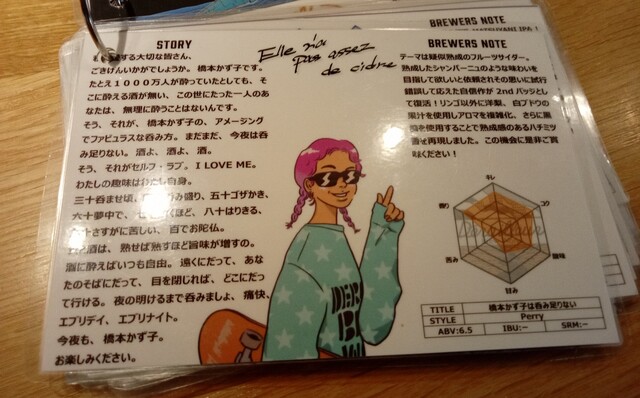 STORY
する大切な皆さん、
ごきげんいかがでしょうか。橋本かず子です。
たとえ1000万人が酔っていたとしても、そ
こに酔える酒が無い、この世にたった一人のあ
なたは、無理に酔うことはないんです。
そう、それが、橋本かず子の、アメージング
でファビュラスな呑み方。まだまだ、今夜は呑
み足りない。酒よ、酒よ、酒。
そう、それがセルフ・ラブ。I LOVE ME。
わたしの趣味はわたし自身。
三十呑ませ頃、盛り、五十ゴザかき、
六十夢中で、ほど、八十はりきる、
さすがに苦しい、百でお陀仏。
酒は、熟せば熟すほど旨味が増すの。
酒に酔えばいつも自由。遠くにだって、あな
たのそばにだって、目を閉じれば、どこにだっ
て行ける。夜の明けるまで呑みましょ、痛快、
エブリデイ、エブリナイト。
今夜も、橋本かず子。
お楽しみください。
Elle n'a
pas assez
de cidre
BREWERS NOTE
BREWERS NOTE
テーマは疑似熟成のフルーツサイダー。
熟成したシャンパーニュのような味わいを
目指して欲しいと依頼されその思いに試行
錯誤して応えた自信作が 2nd バッジとし
て復活！リンゴ以外に洋梨、白ブドウの
果汁を使用しアロマを複雑化、さらに黒
を使用することで熟成感のあるハチミツ
香を再現しました。この機会に是非ご賞
味ください！
キレ
コク
酸味
甘み
苦み
香り
TITLE 橋本かず子は呑み足りない
STYLE Perry
ABV:6.5 IBU:− SRM:−